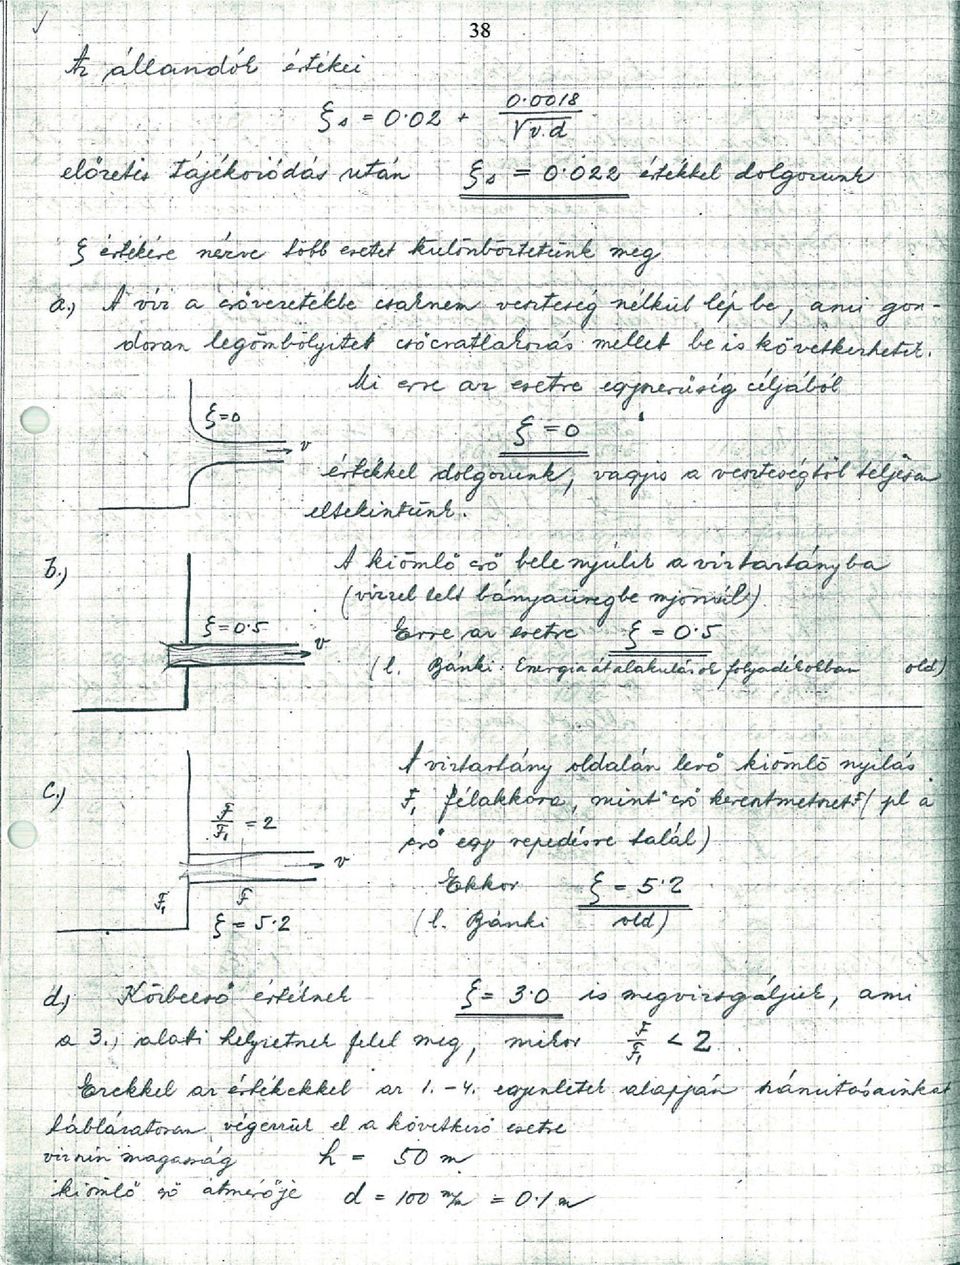 38
Az állandók értékei
ξs = 0·02 + 0·0018 / √v.d
előzetes tájékozódás után ξs = 0·022 értékkel dolgozunk
ξ értékére nézve több esetet különböztetünk meg
a.) A víz a csővezetékbe csaknem veszteség nélkül lép be, ami gon-
dosan legömbölyitett csőcsatlakozás mellett be is következhetik.
Mi erre az esetre egyszerüség céljából
ξ=0
v
ξ = 0
értékkel dolgozunk, vagyis a veszteségtől teljesen
eltekintünk.
b.) A kiömlő cső bele nyúlik a víztartányba
(vízzel telt bányaüregbe
ξ=0·5
v
Erre az esetre ξ = 0·5
(l. Bánki: Energia átalakulások folyadékokban old)
c.) A víztartány oldalán levő kiömlő nyilás
F1 félakkora, mint cső keresztmetszet F ( pl a
F/F1 = 2
cső egy repedésre talál)
v
Ekkor ξ = 5·2
F1 F
ξ = 5·2
(l. Bánki old)
d.) Közbeeső értéknek ξ = 3·0 is megvizsgáljuk, ami
a 3.) alatti helyzetnek felel meg, mikor F/F1 < 2
Ezekkel az értékekkel az 1. - 4. egyenletek alapján számitásainkat
táblázatosan végezzük el a következő esetre
víznín magasság h = 50 m
kiömlő cső átmérője d = 100 m/m = 0·1 m